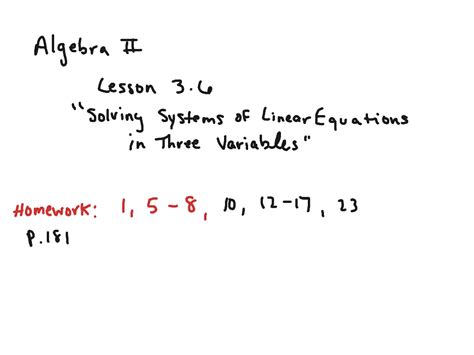 Algebra II
Lesson 3.6
"Solving Systems of Linear Equations
in Three Variables"
Homework: 1, 5-8, 10, 12-17, 23
p.181